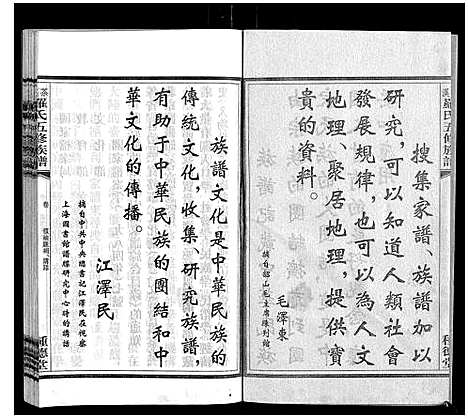 搜集家譜、族譜加以
研究,可以知道人類社會
發展規律,也可以為人文
地理、聚居地理,提供寶
貴的資料。
毛澤東
摘自韶山毛主席陳列館
族譜文化是中華民族的
傳統文化,收集、研究族譜,
有助于中華民族的團結和中
華文化的傳播。
江澤民
摘自中共中央總書記江澤民在視察
上海圖書館譜牒研究中心時的講話
羅氏五修族譜
卷
羅氏五修族譜